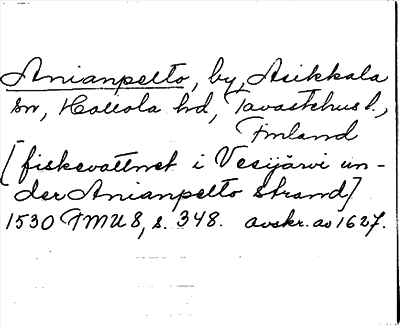 Anianpelto, by, Asikkala
sn, Hollola hd, Tavastehus l.,
Finland
[fiskevattnet i Vesijärvi un-
der Anianpelto strand]
1530 FMU 8, s. 348. avskr. av 1627.